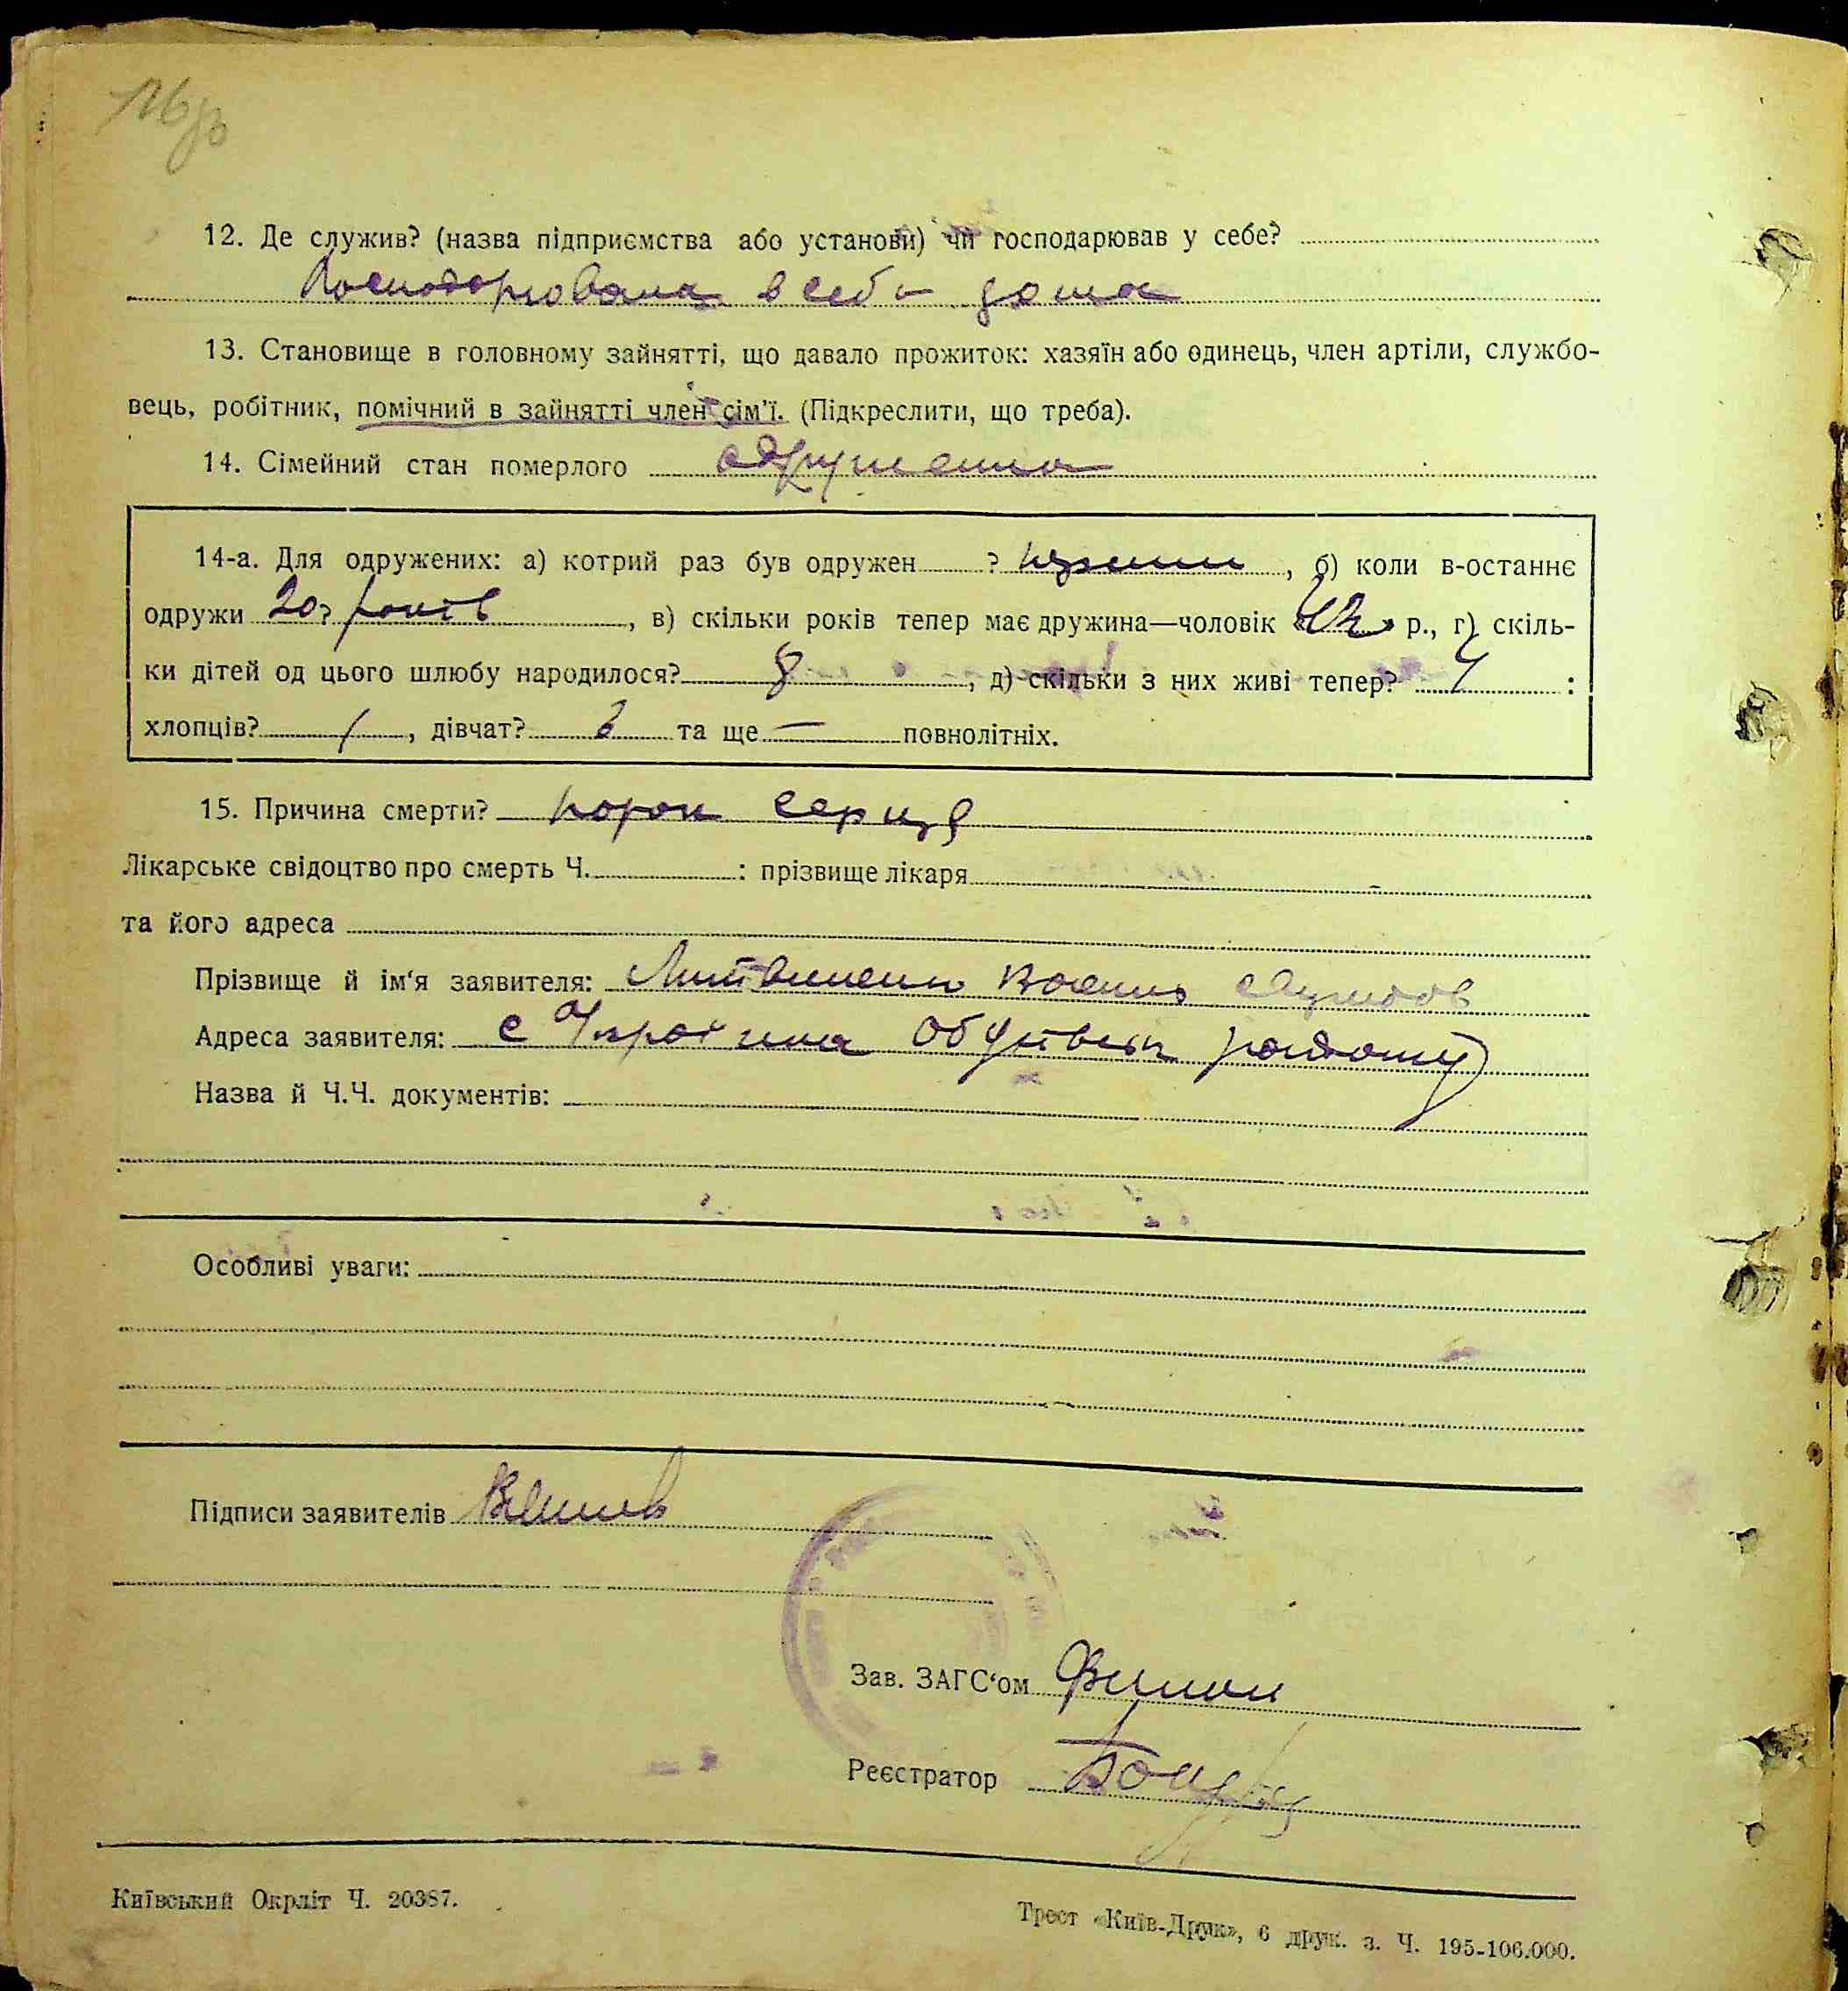 12. Де служив? (назва підприємства або установи) чи господарював у себе?
Господорювала в себе дома
13. Становище в головному зайнятті, що давало прожиток: хазяїн або одинець, член артіли, службо-
вець, робітник, помічний в зайнятті член сім'ї. (Підкреслити, що треба).
14. Сімейний стан померлого одружена
14-а. Для одружених: а) котрий раз був одружен ? первий, б) коли в-останнє
одружи 20? років, в) скільки років тепер має дружина—чоловік «42» р., г) скіль-
ки дітей од цього шлюбу народилося? 8, д) скільки з них живі тепер? 4 :
хлопців? 1, дівчат? 3 та ще — повнолітніх.
15. Причина смерти? порок серця
Лікарське свідоцтво про смерть Ч. : прізвище лікаря
та його адреса
Прізвище й ім'я заявителя: Литвиненко
Адреса заявителя: с Україна району
Назва й Ч.Ч. документів:
Особливі уваги:
Підписи заявителів
Зав. ЗАГС'ом
Реєстратор
Київський Окрліт Ч. 20387.
Трест «Київ-Друк», 6 друк. з. Ч. 195-106.000.